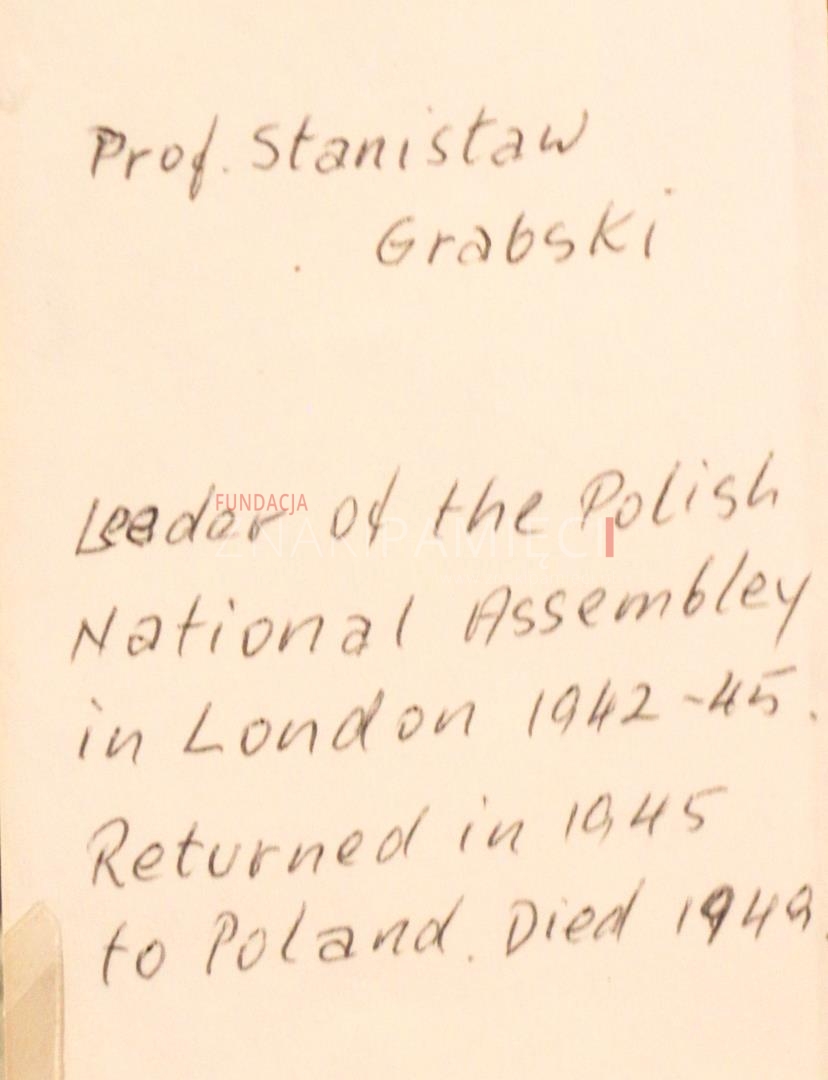 Prof. Stanisław
Grabski
Leader of the Polish
FUNDACJA
ZNAKI PAMIĘCI
National Assembley
in London 1942-45.
Returned in 1945
to Poland. Died 1949.